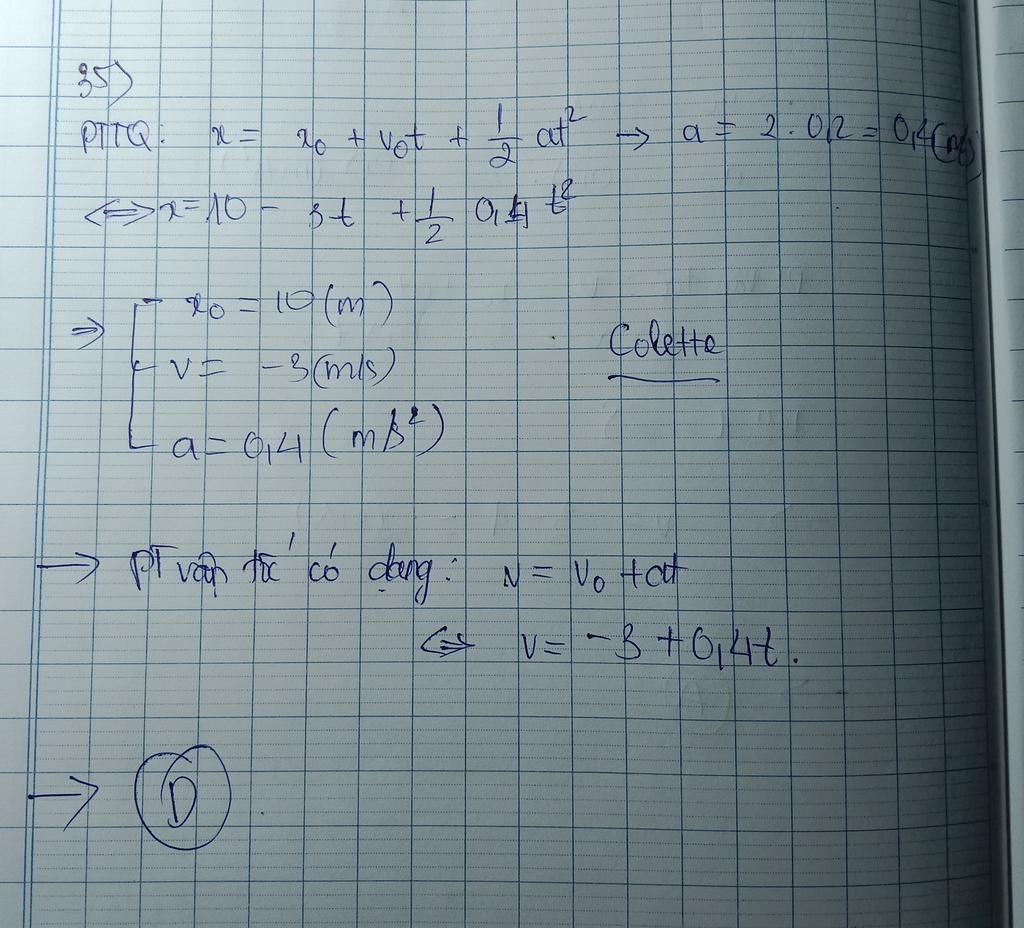 35)
PTTQ: x = x₀ + v₀t + 1/2 at² → a = 2 . 0,2 = 0,4
⇔ x = 10 - 3t + 1/2 0,4 t²
⇒ x₀ = 10 (m)
v = -3 (m/s)
Colette
a = 0,4 (m/s²)
→ PT vận tốc có dạng: v = v₀ + at
⇔ v = -3 + 0,4t.
→ D